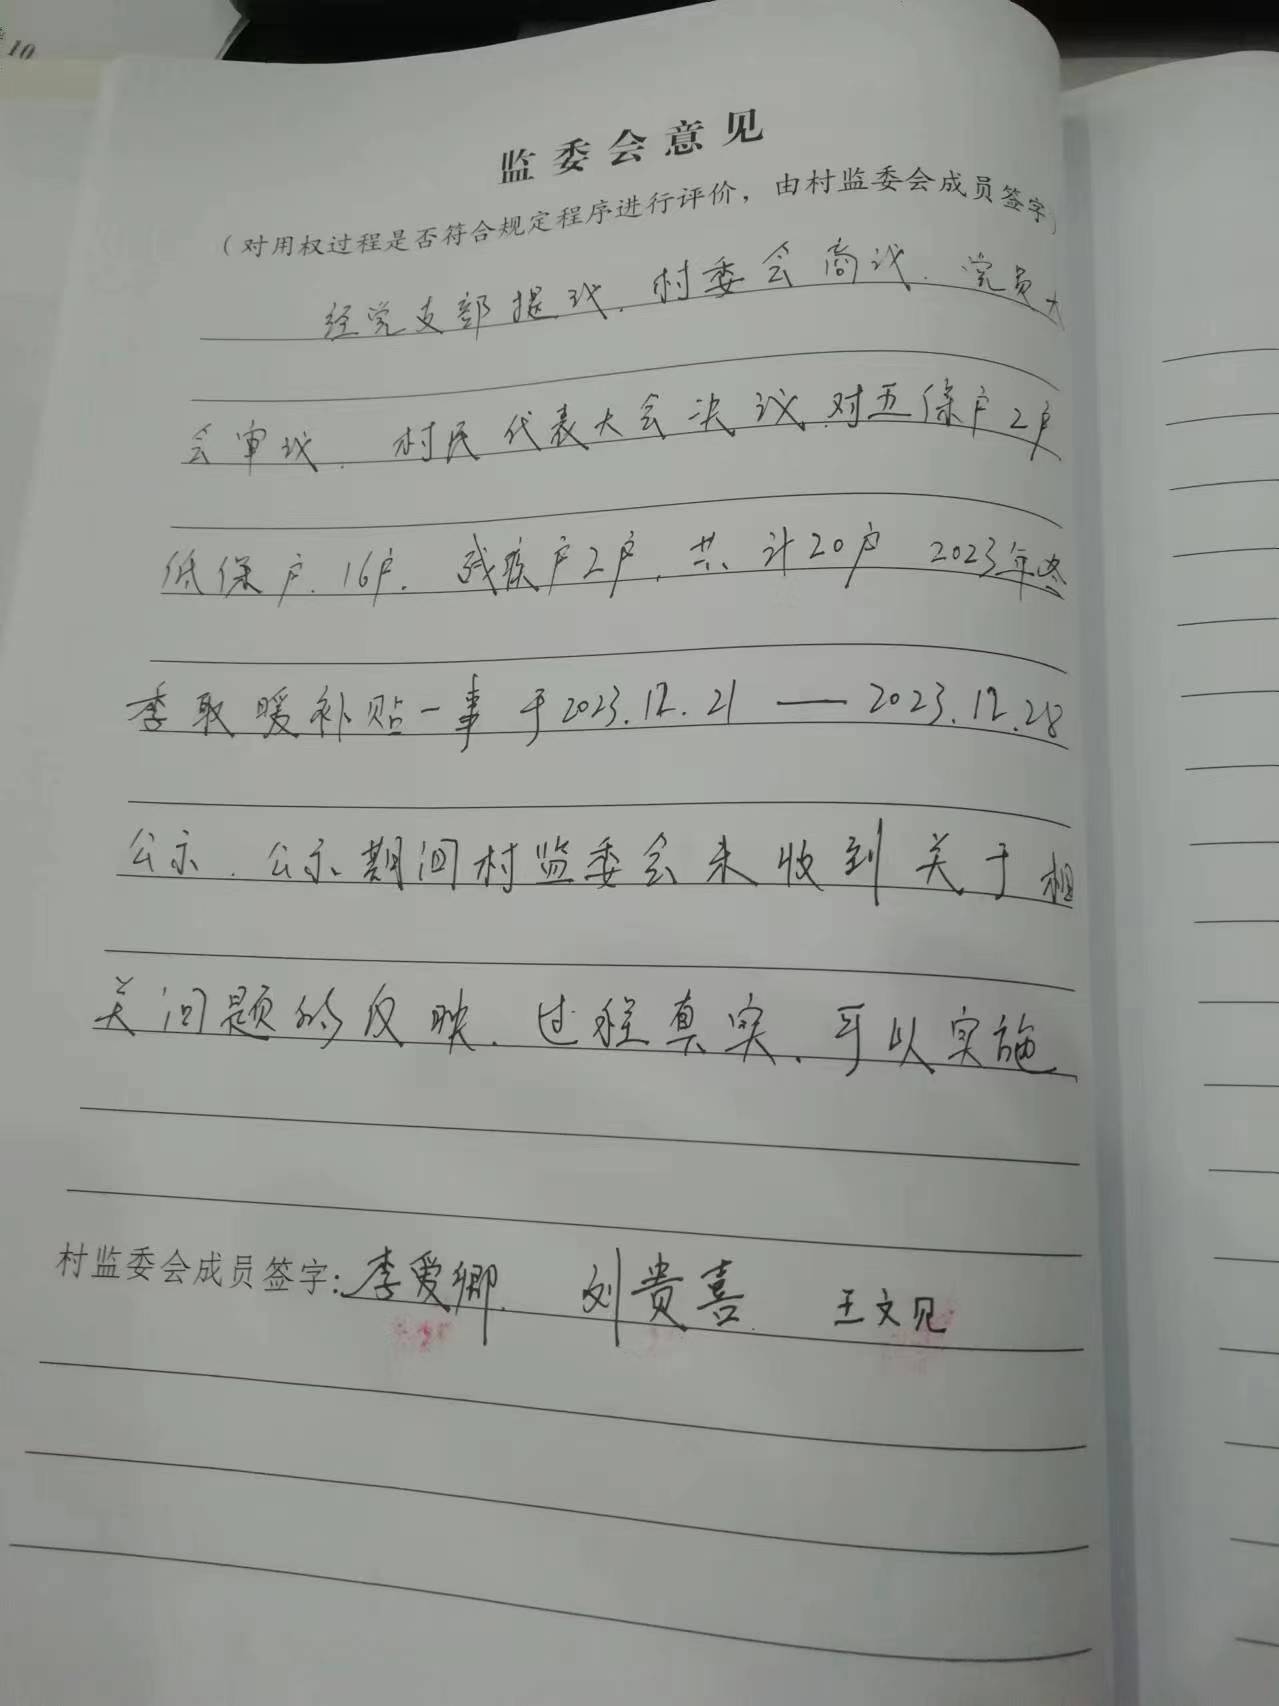 10
监委会意见
（对用权过程是否符合规定程序进行评价，由村监委会成员签字）
经党支部提议、村委会商议、党员大
会审议、村民代表大会决议对五保户2户
低保户、16户、残疾户2户，共计20户 2023年冬
季取暖补贴一事于2023.12.21——2023.12.28
公示、公示期间村监委会未收到关于相
关问题的反映、过程真实、可以实施
村监委会成员签字：李爱卿 刘贵喜 王文见